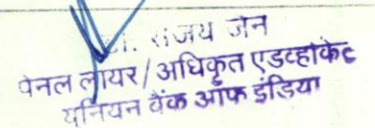 डॉ. संजय जैन
पेनल लायर/अधिकृत एडव्होकेट
यूनियन बैंक ऑफ इंडिया